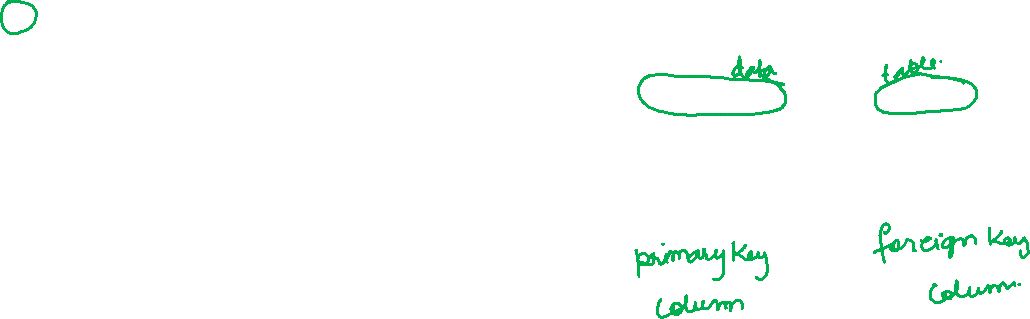 data table.
primary key column
foreign key column.